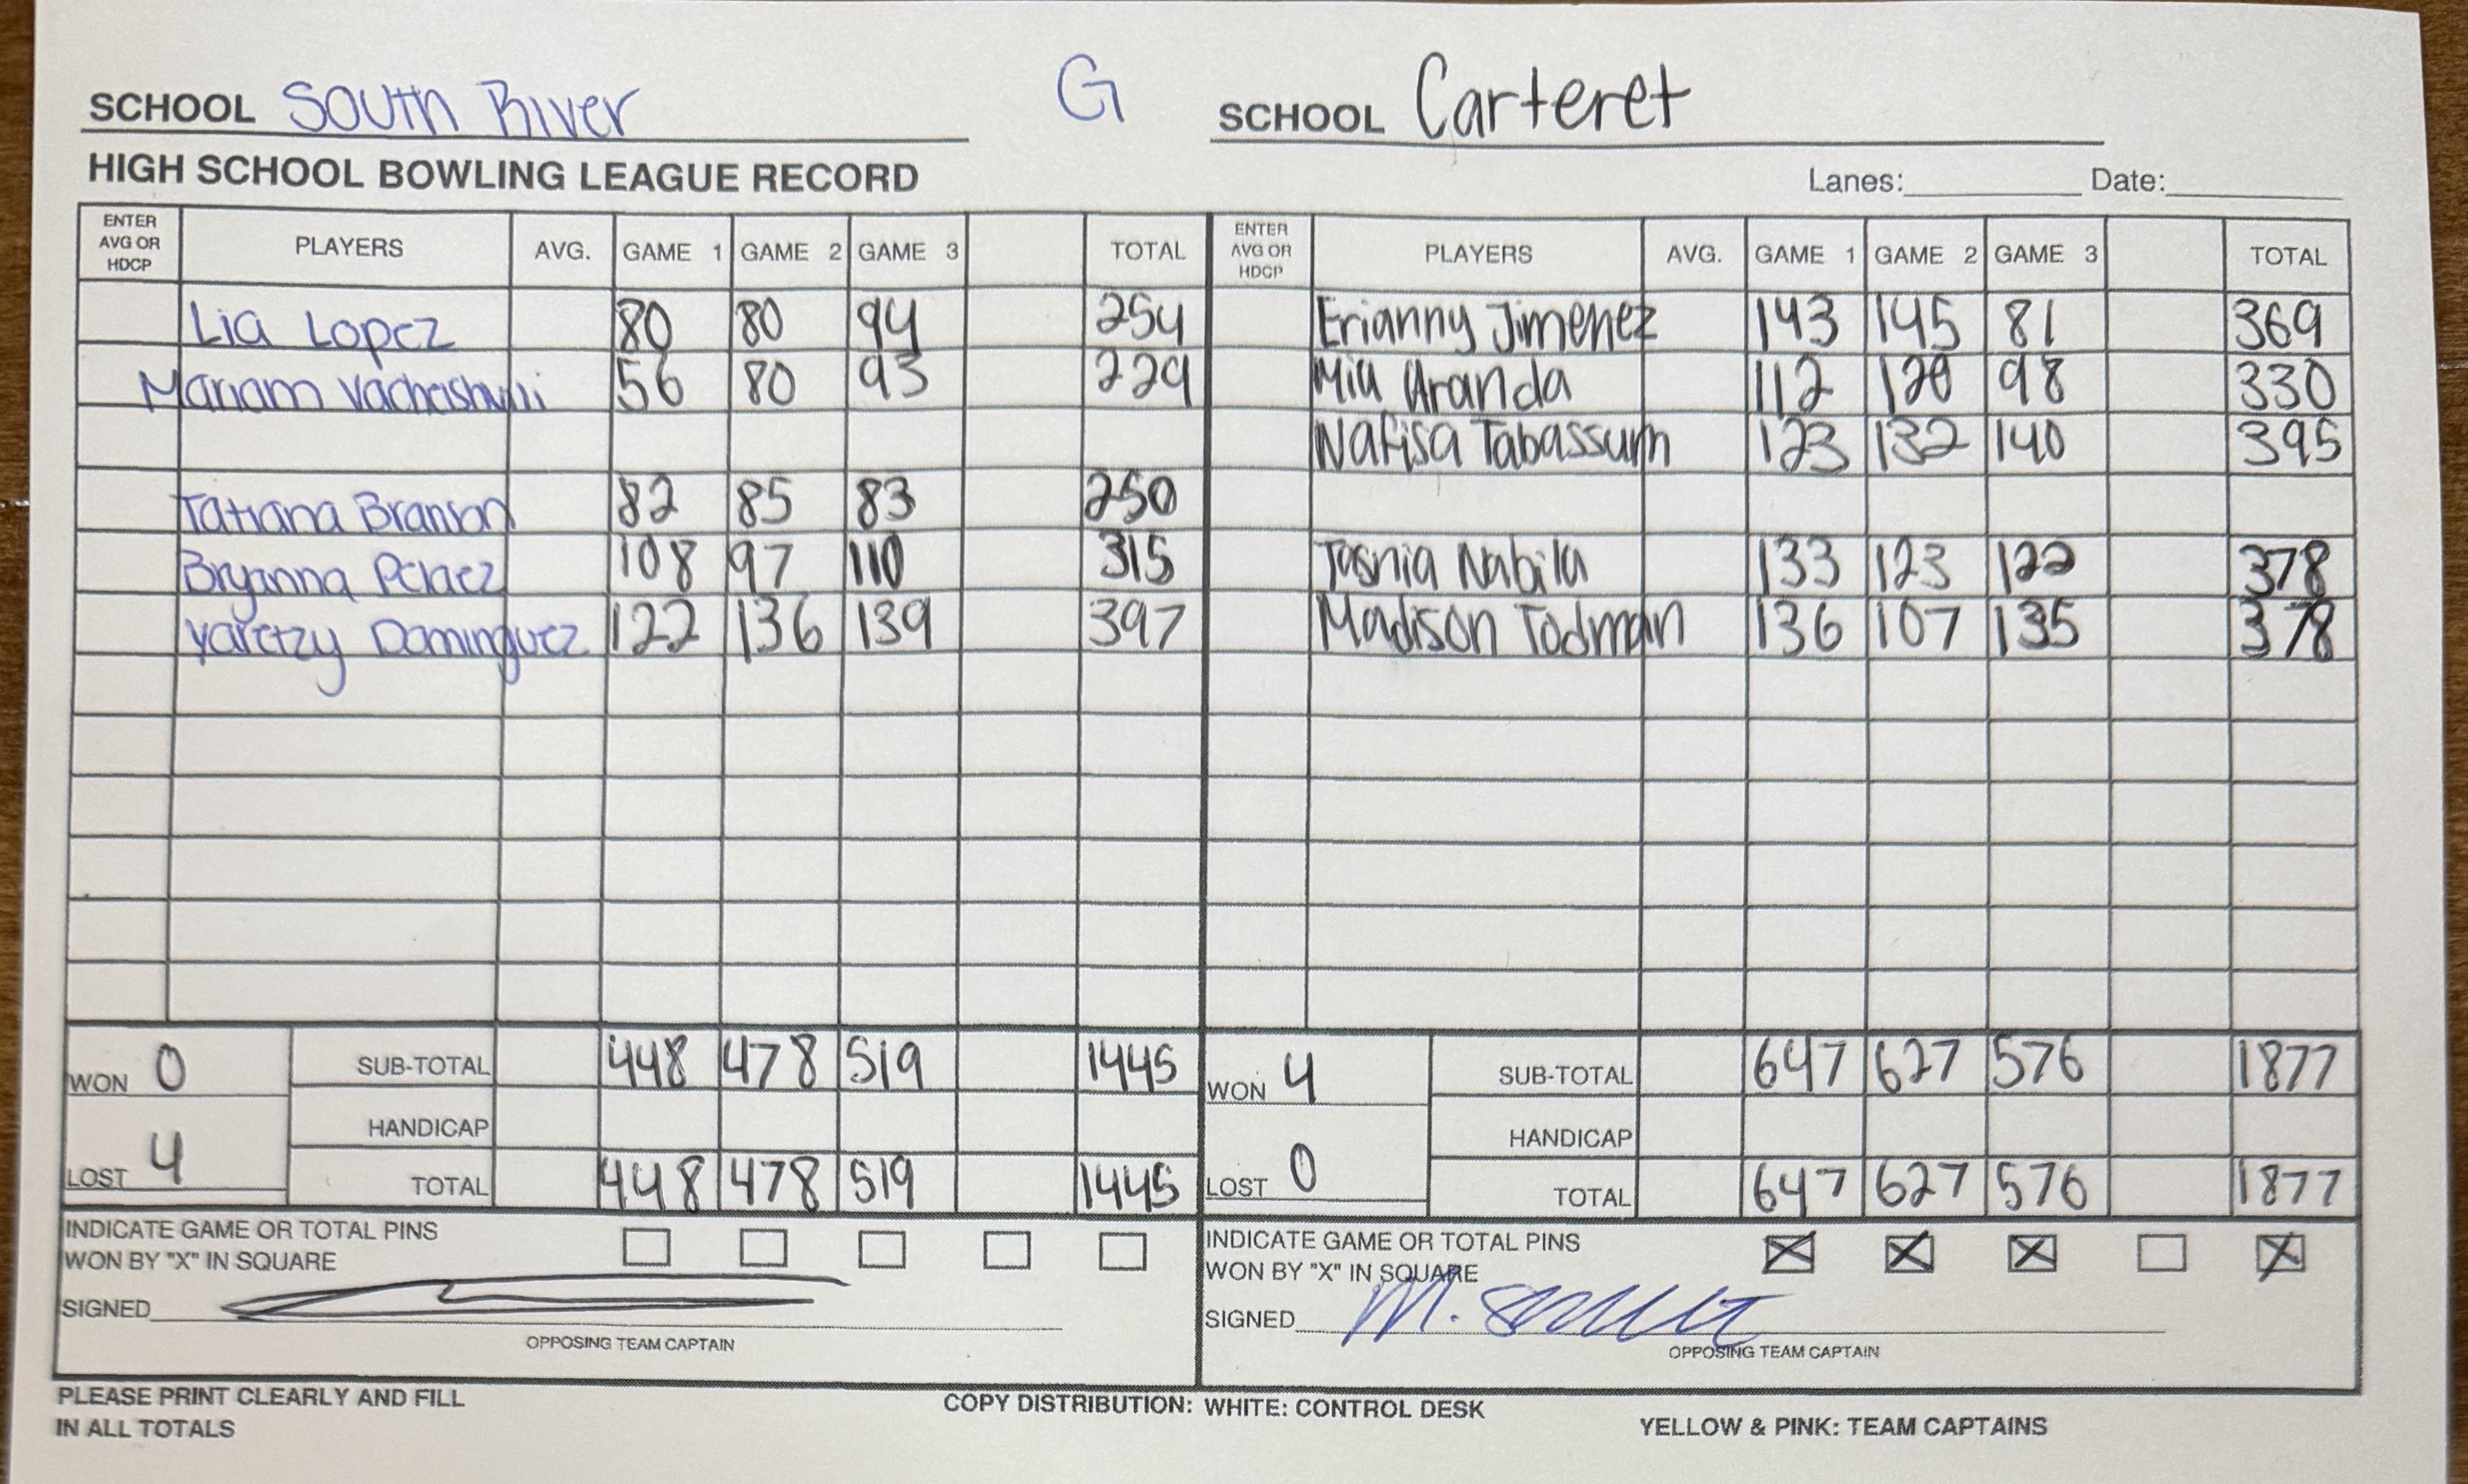 SCHOOL South River G SCHOOL Carteret
HIGH SCHOOL BOWLING LEAGUE RECORD Lanes: Date:
ENTER AVG OR HDCP PLAYERS AVG. GAME 1 GAME 2 GAME 3 TOTAL ENTER AVG OR HDCP PLAYERS AVG. GAME 1 GAME 2 GAME 3 TOTAL
Lia Lopez 80 80 94 254 Erianny Jimenez 143 145 81 369
Mariam 56 80 93 229 Mia Aranda 112 120 98 330
Nafisa Tabassum 123 132 140 395
Tatiana Branson 82 85 83 250
Bryanna Pelaez 108 97 110 315 Tasnia Nabila 133 123 122 378
Yaretzy Dominguez 122 136 139 397 Madison Todman 136 107 135 378
WON 0 SUB-TOTAL 448 478 519 1445 WON 4 SUB-TOTAL 647 627 576 1877
HANDICAP HANDICAP
LOST 4 TOTAL 448 478 519 1445 LOST 0 TOTAL 647 627 576 1877
INDICATE GAME OR TOTAL PINS INDICATE GAME OR TOTAL PINS
WON BY "X" IN SQUARE WON BY "X" IN SQUARE
SIGNED SIGNED M.
OPPOSING TEAM CAPTAIN OPPOSING TEAM CAPTAIN
PLEASE PRINT CLEARLY AND FILL
IN ALL TOTALS
COPY DISTRIBUTION: WHITE: CONTROL DESK
YELLOW & PINK: TEAM CAPTAINS